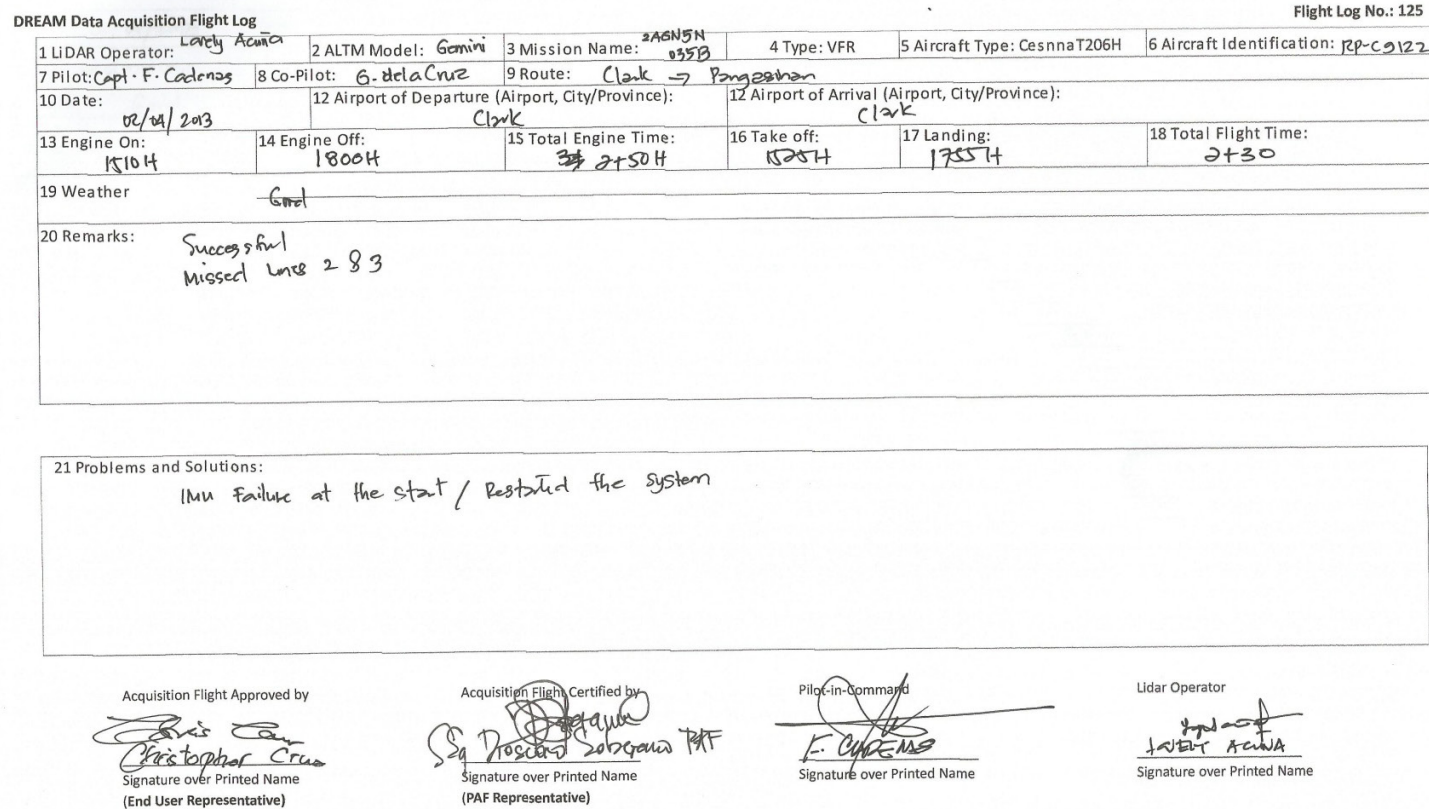 DREAM Data Acquisition Flight Log
Flight Log No.: 125
1 LiDAR Operator: Lovely Acuña
2 ALTM Model: Gemini
3 Mission Name: 2AGN5N 035B
4 Type: VFR
5 Aircraft Type: CesnnaT206H
6 Aircraft Identification: RP-C9122
7 Pilot: Capt. F. Cadenas
8 Co-Pilot: G. dela Cruz
9 Route: Clark → Pangasinan
10 Date: 02/04/2013
12 Airport of Departure (Airport, City/Province): Clark
12 Airport of Arrival (Airport, City/Province): Clark
13 Engine On: 1510H
14 Engine Off: 1800H
15 Total Engine Time: 2+50H
16 Take off: 1525H
17 Landing: 1755H
18 Total Flight Time: 2+30
19 Weather Good
20 Remarks: Successful
Missed lines 2 & 3
21 Problems and Solutions:
IMU Failure at the start / Restarted the system
Acquisition Flight Approved by
Christopher Cruz
Signature over Printed Name
(End User Representative)
Acquisition Flight Certified by
Soberano PAF
Signature over Printed Name
(PAF Representative)
Pilot-in-Command
F. CADENAS
Signature over Printed Name
Lidar Operator
LOVELY ACUÑA
Signature over Printed Name